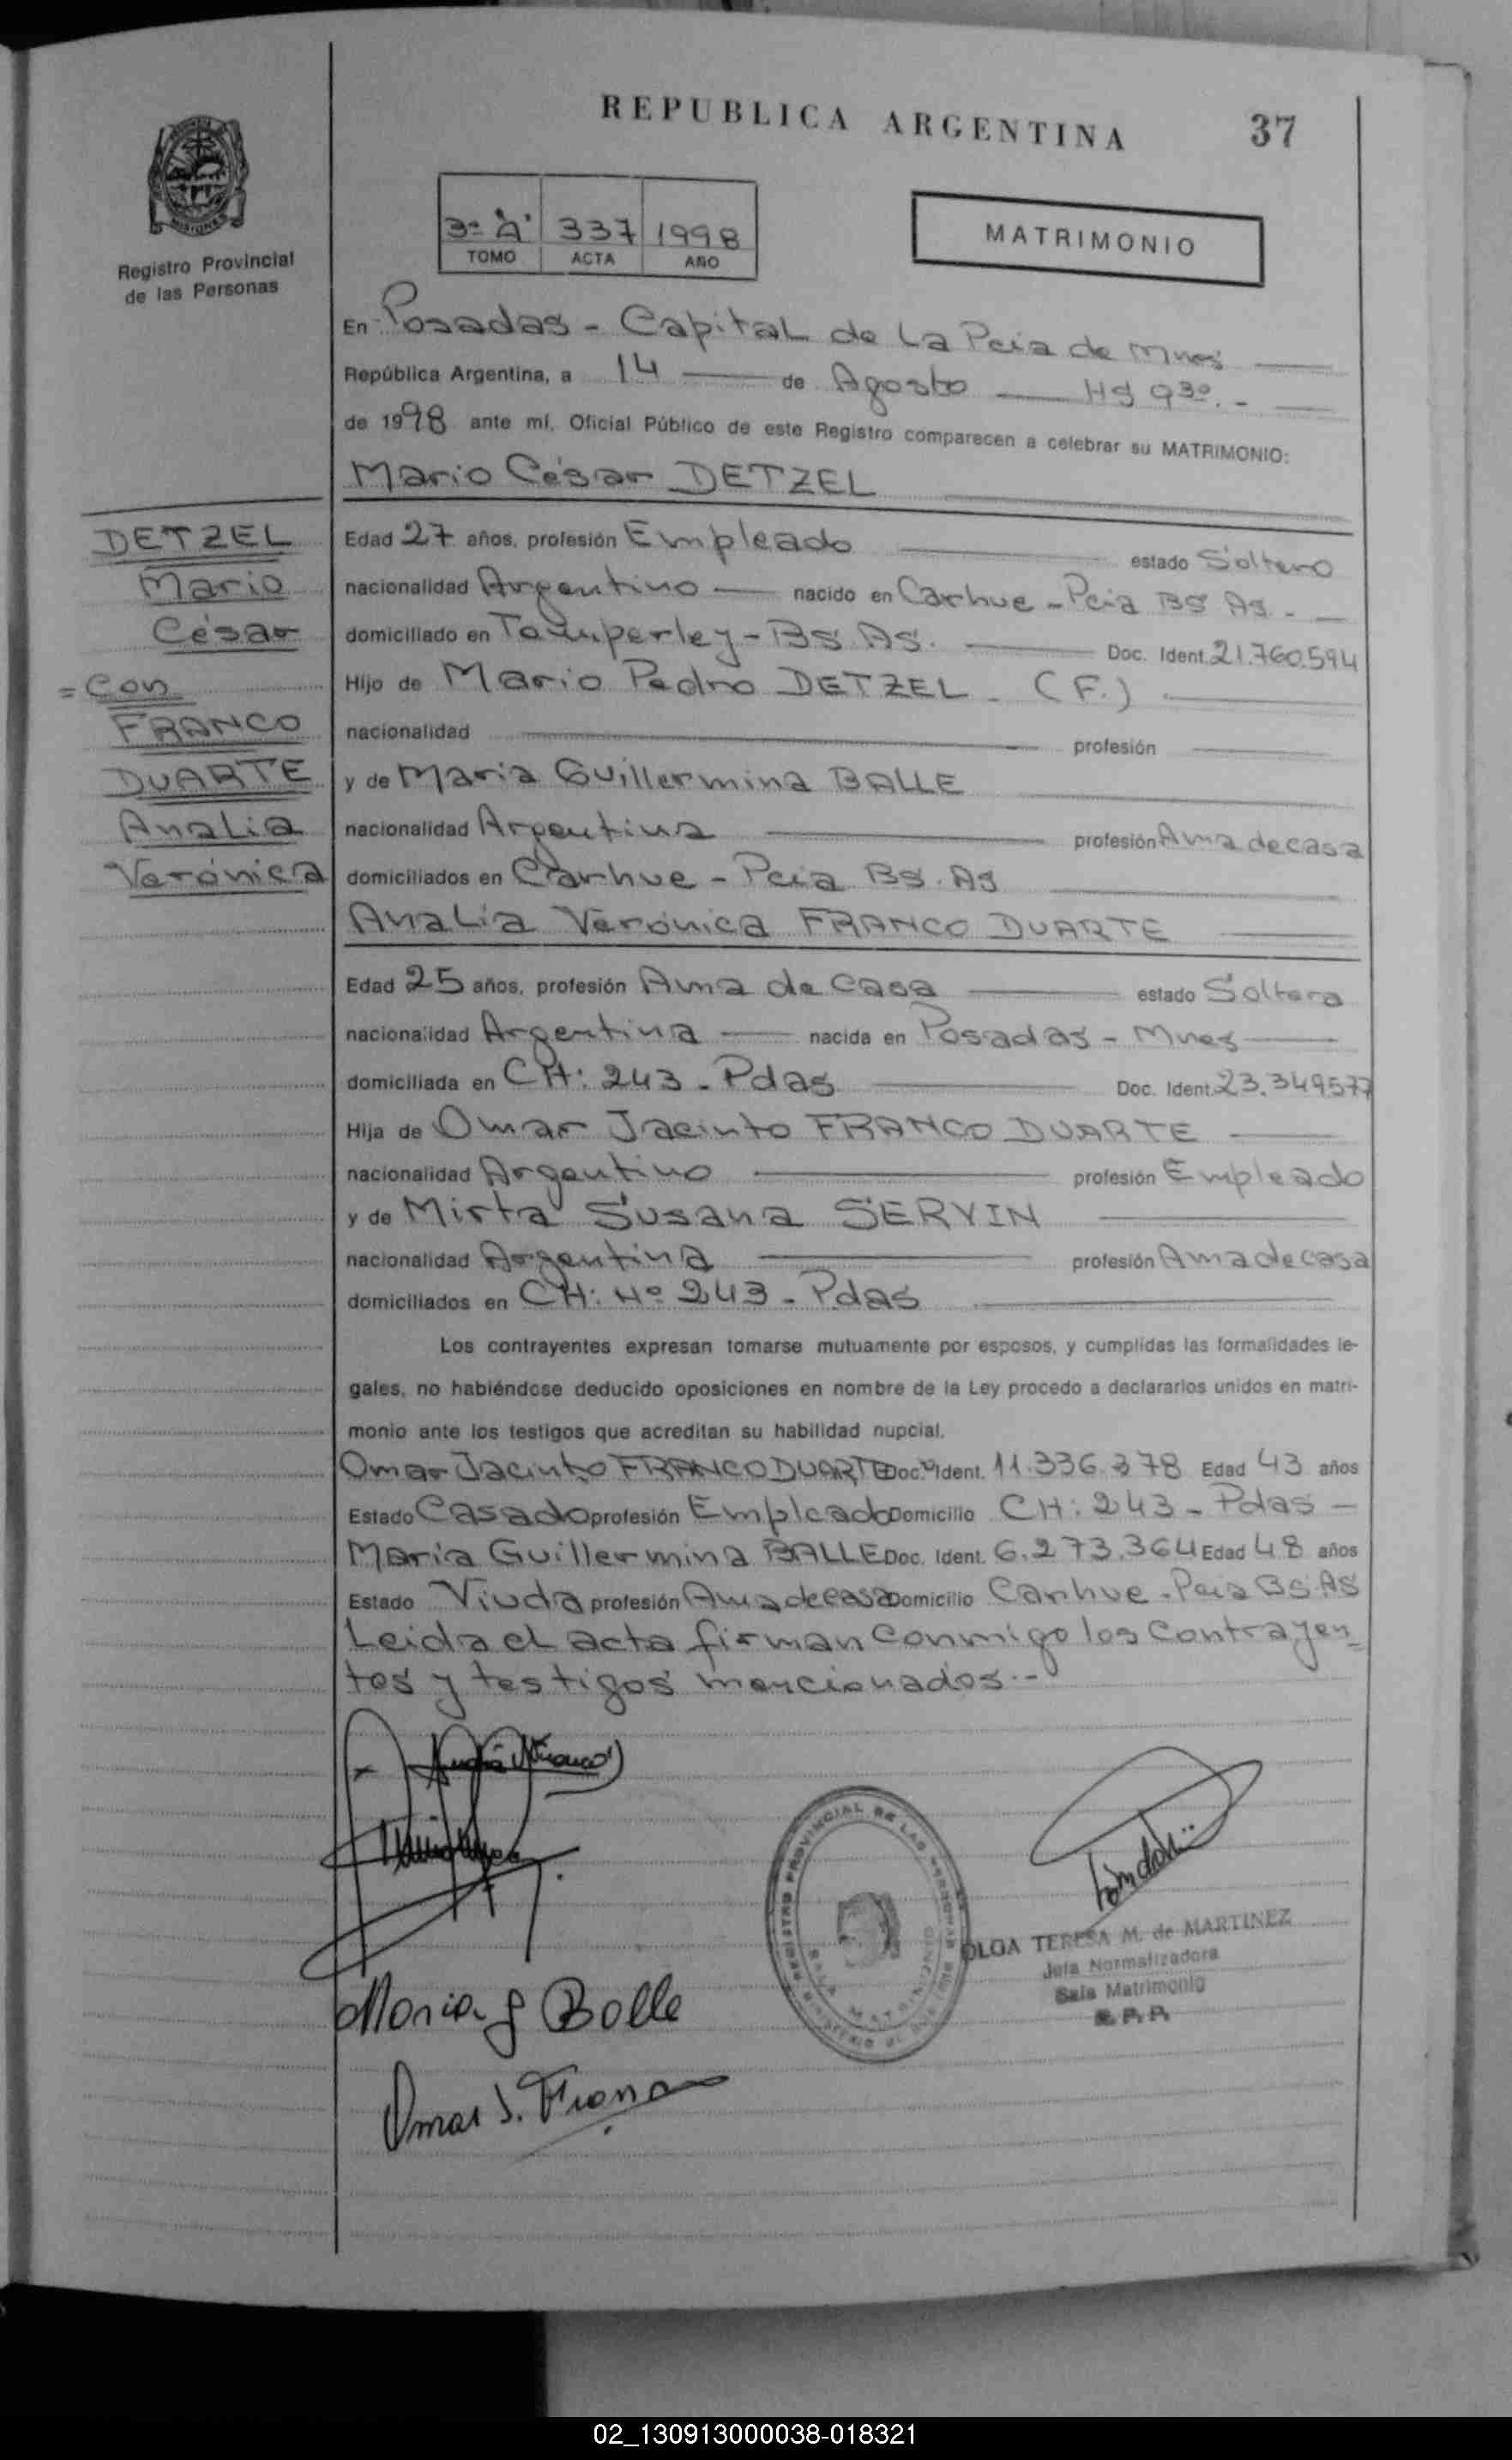 REPUBLICA ARGENTINA
37
Registro Provincial
de las Personas
3º "A" 337 1998
TOMO ACTA AÑO
MATRIMONIO
En Posadas - Capital de La Pcia de Mnes
República Argentina, a 14 de Agosto Hs 9 30. -
de 1998 ante mí, Oficial Público de este Registro comparecen a celebrar su MATRIMONIO:
Mario César DETZEL
DETZEL
Mario
César
= Con
FRANCO
DUARTE
Analia
Verónica
Edad 27 años, profesión Empleado estado Soltero
nacionalidad Argentino nacido en Carhue - Pcia BS As. -
domiciliado en Temperley - BS. AS. Doc. Ident. 21.760.594
Hijo de Mario Pedro DETZEL - (F.)
nacionalidad profesión
y de Maria Guillermina BALLE
nacionalidad Argentina profesión Ama de casa
domiciliados en Carhue - Pcia BS. AS
Analia Verónica FRANCO DUARTE
Edad 25 años, profesión Ama de Casa estado Soltera
nacionalidad Argentina nacida en Posadas - Mnes
domiciliada en CH: 243 - Pdas Doc. Ident. 23.349577
Hija de Omar Jacinto FRANCO DUARTE
nacionalidad Argentino profesión Empleado
y de Mirta Susana SERVIN
nacionalidad Argentina profesión Ama de casa
domiciliados en CH: Nº 243 - Pdas
Los contrayentes expresan tomarse mutuamente por esposos, y cumplidas las formalidades le-
gales, no habiéndose deducido oposiciones en nombre de la Ley procedo a declararlos unidos en matri-
monio ante los testigos que acreditan su habilidad nupcial.
Omar Jacinto FRANCO DUARTE Doc. Ident. 11.336.378 Edad 43 años
Estado Casado profesión Empleado Domicilio CH: 243 - Pdas -
Maria Guillermina BALLE Doc. Ident. 6.273.364 Edad 48 años
Estado Viuda profesión Ama de casa Domicilio Carhue - Pcia BS. AS
Leida el acta firman conmigo los contrayen-
tes y testigos mencionados. -
Maria G Balle
Omar J. Franco
REGISTRO PROVINCIAL DE LAS PERSONAS
SALA MATRIMONIO
OLGA TERESA M. de MARTINEZ
Jefa Normalizadora
Sala Matrimonio
R. P. P.
02_130913000038-018321